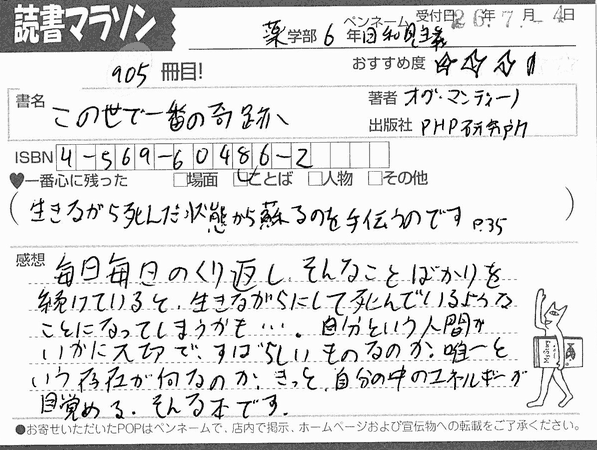 読書マラソン
ペンネーム 受付日 26年 7.月 -4日
薬学部 6 年 日和見主義
905 冊目!
おすすめ度 ☆☆☆
書名 この世で一番の奇跡
著者 オグ・マンディーノ
出版社 PHP研究所
ISBN 4-569-60486-2
♥一番心に残った □場面 ☑ことば □人物 □その他
(生きながら死んだ状態から蘇るのを手伝うのです P.35)
感想 毎日毎日のくり返し、そんなことばかりを
続けていると、生きながらにして死んでいるような
ことになってしまうかも…。自分という人間が
いかに大切で、すばらしいものなのか。唯一と
いう存在が何なのか、きっと、自分の中のエネルギーが
目覚める。そんな本です。
●お寄せいただいたPOPはペンネームで、店内で掲示、ホームページおよび宣伝物への転載をご了承ください。